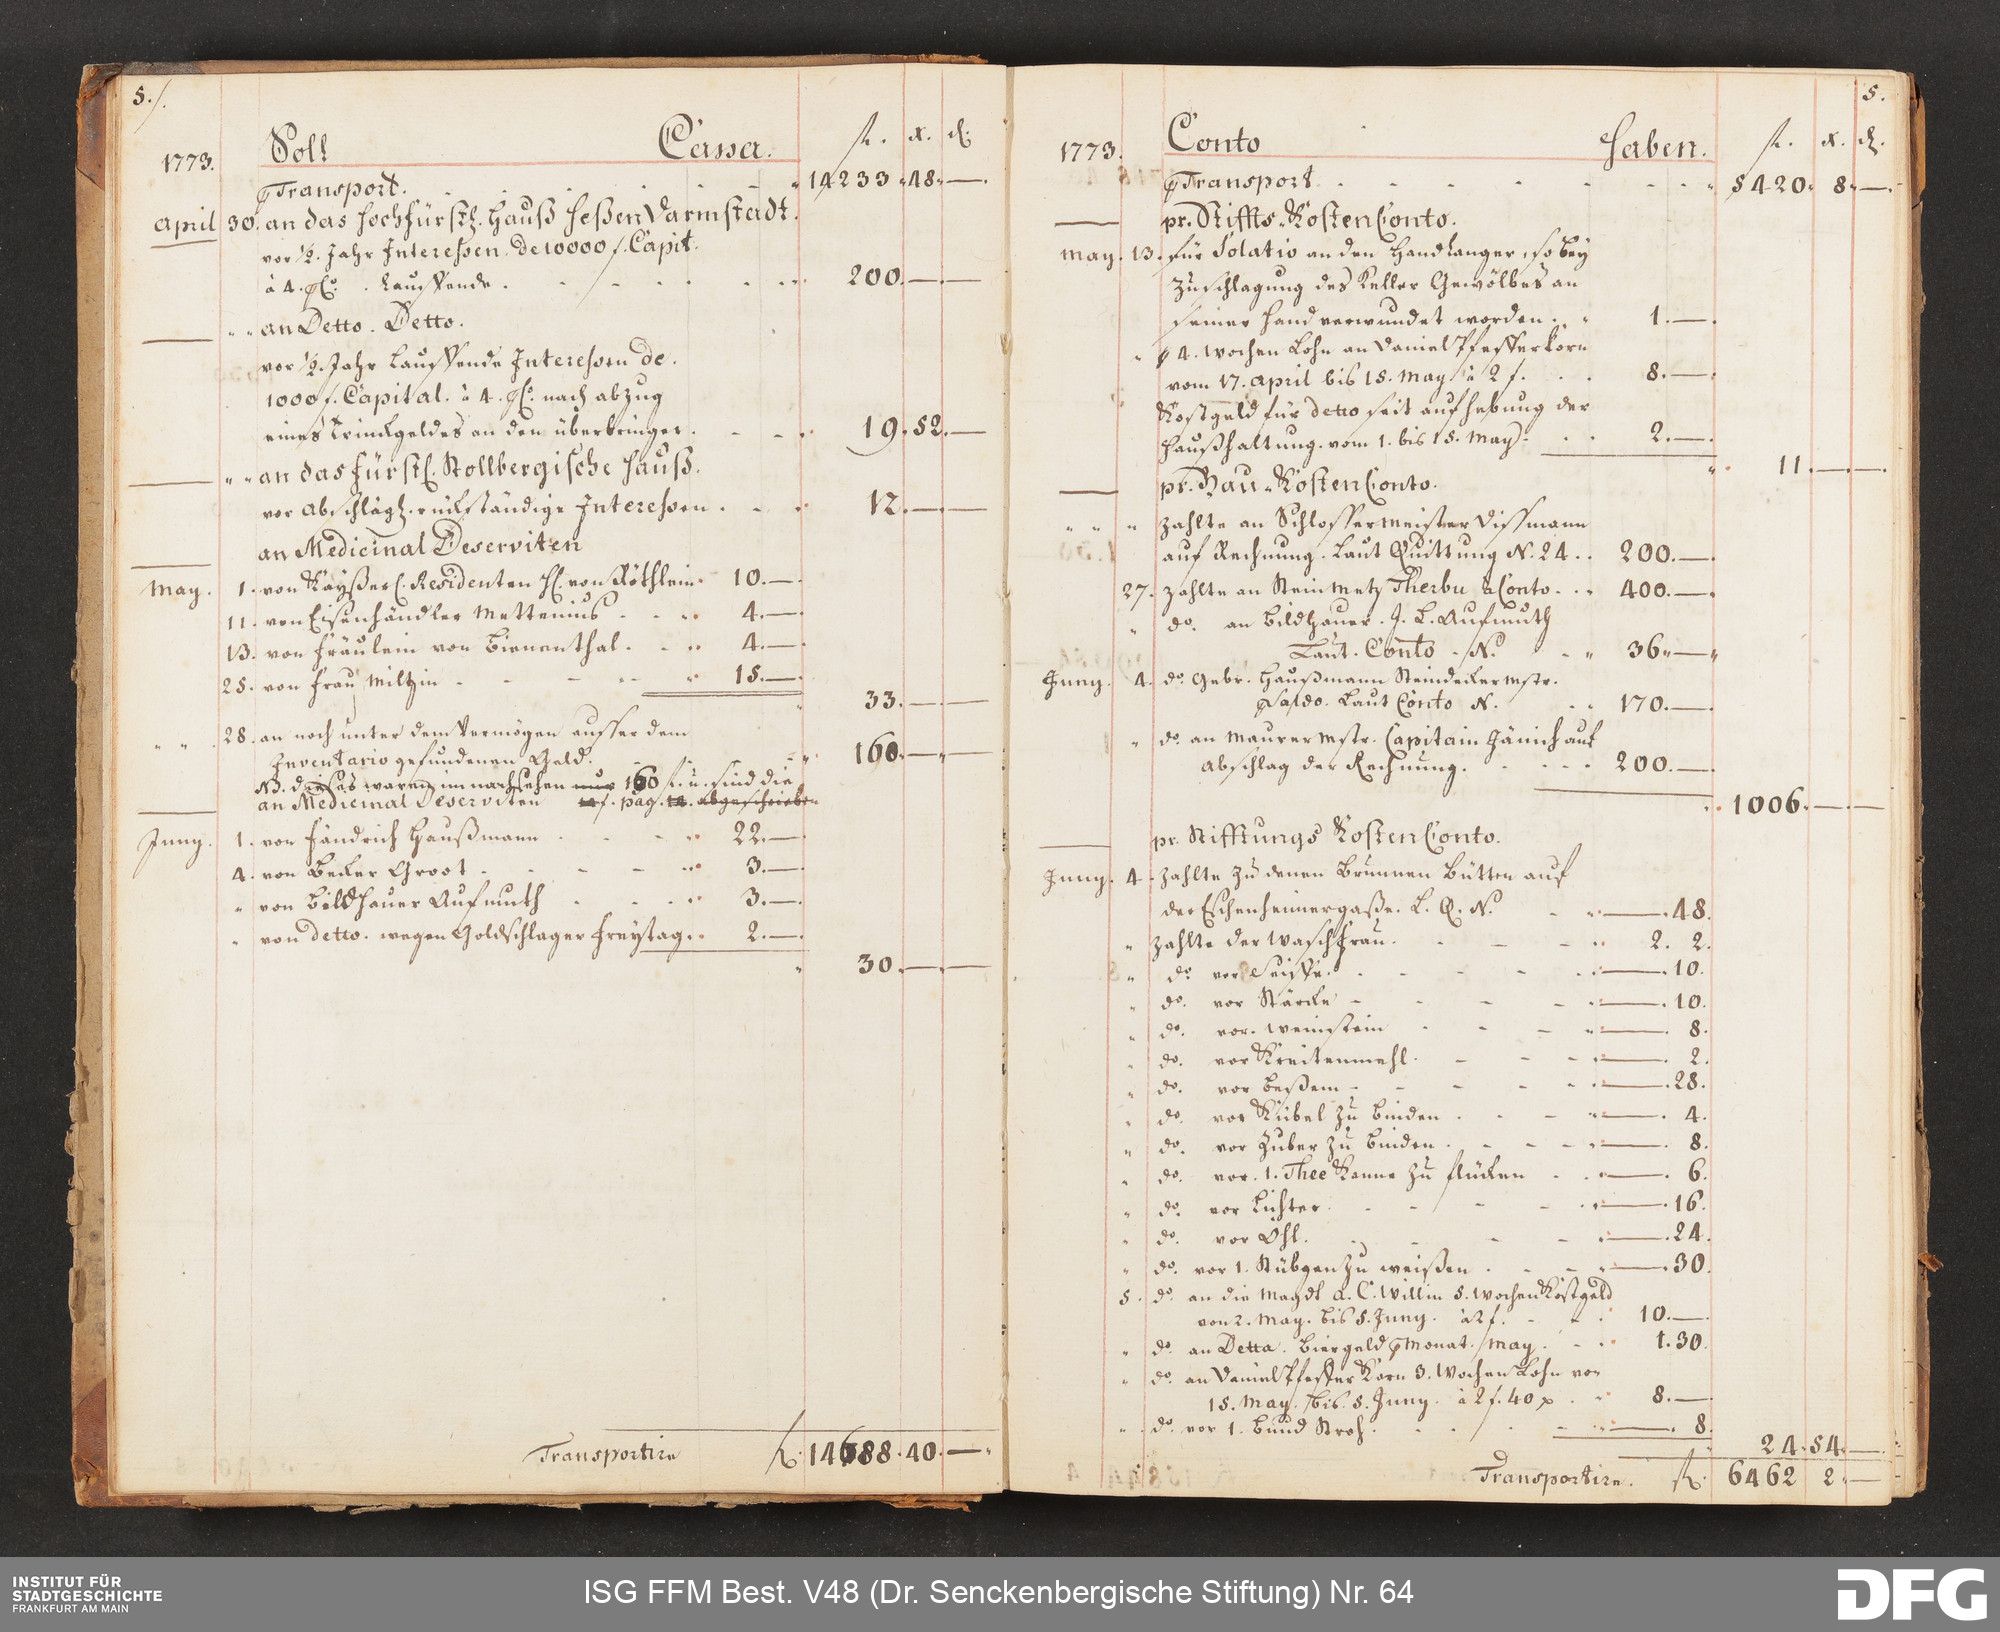 5./.
1773. Soll Cassa. fl. x. d.
Transport. 14233. 48. —
April 30. an das Hochfürstl. Hauß Heßen Darmstadt.
vor ½. Jahr Interessen. de 10000 f. Capit.
à 4. pCo. Lauffende. 200. — —
" " an Detto. Detto.
vor ½. Jahr Lauffende Interessen de.
1000 f. Capital. à 4. pCo. nach abzug
eines Trinkgeldes an den überbringer. 19. 52. —
" " an das fürstl. Stollbergische Hauß.
vor abschlägl. rückständige Interessen. 12. — —
an Medicinal Deserviten
May. 1. von Kayßerl. Residenten H. von Röthlein. 10. —
11. von Eisenhändler Mettenius 4. —
13. von Fräulein von Bienenthal. 4. —
25. von Frau Miltzin 15. —
33. — —
" " 28. an noch unter dem Vermögen ausser dem
Inventario gefundenen Geld. 160. — —
NB. dieses waren im nachsehen nur 160 f. u. sind die
an Medicinal Deserviten f. pag. 14. abgeschrieben
Juny. 1. von Fändrich Haußmann 22. —
4. von Becker Groot 3. —
" von Bildhauer Aufmuth 3. —
" von detto. wegen Goldschlager Freytag. 2. —
30. — —
Transportire fl. 14688. 40. —
5.
1773. Conto Haben. fl. x. d.
Transport 5420. 8. —
pr. Stiffts-Kosten Conto.
May. 13. für Solatio an den Handlanger, so bey
Zuschlagung des Keller Gewölbes an
seiner Hand verwundet worden. 1. —
" 4. Wochen Lohn an Daniel Pfefferkorn
vom 17. April bis 15. May. à 2 f. 8. —
Kostgeld für detto seit aufhebung der
Haußhaltung. vom 1. bis 15. May. 2. —
11. — —
pr. Bau-Kosten Conto.
" " " zahlte an Schlossermeister Dissmann
auf Rechnung. Laut Quittung N. 24. 200. —
27. zahlte an Steinmetz Therbu à Conto. 400. —
" do. an Bildhauer. J. L. Aufmuth
Laut. Conto. N. 36. —
Juny. 4. do. Gebr. Haußmann Steindeckermstr.
Saldo. Laut Conto N. 170. —
" do. an Maurermstr. Capitain Jänich auf
Abschlag der Rechnung. 200. —
1006. — —
pr. Stifftungs Kosten Conto.
Juny. 4. zahlte zu denen Brunnen Bütten auf
der Eschenheimergaße. L. Q. N. — 48.
" zahlte der Waschfrau. 2. 2.
" do. vor Seiffe. — 10.
" do. vor Stärcke — 10.
" do. vor. Weinstein — 8.
" do. vor Kreitenmehl. — 2.
" do. vor Beßem — 28.
" do. vor Kübel zu binden — 4.
" do. vor Zuber zu binden. — 8.
" do. vor. 1. Thee Kanne zu flicken — 6.
" do. vor Lichter. — 16.
" do. vor Öhl. — 24.
" do. vor 1. Stübgen zu weißen — 30.
5. do. an die Magdt A. C. Willin 5. Wochen Kostgeld
von 2. May. bis 5. Juny. à 2 f. 10. —
" do. an Detta. Biergeld Monat. May. 1. 30.
" do. an Daniel Pfeffer Korn 3. Wochen Lohn von
15. May. bis. 5. Juny. à 2 f. 40 x. 8. —
" do. vor 1. Bund Stroh. — 8.
24. 54. —
Transportire. fl. 6462 2. —
INSTITUT FÜR
STADTGESCHICHTE
FRANKFURT AM MAIN
ISG FFM Best. V48 (Dr. Senckenbergische Stiftung) Nr. 64
DFG